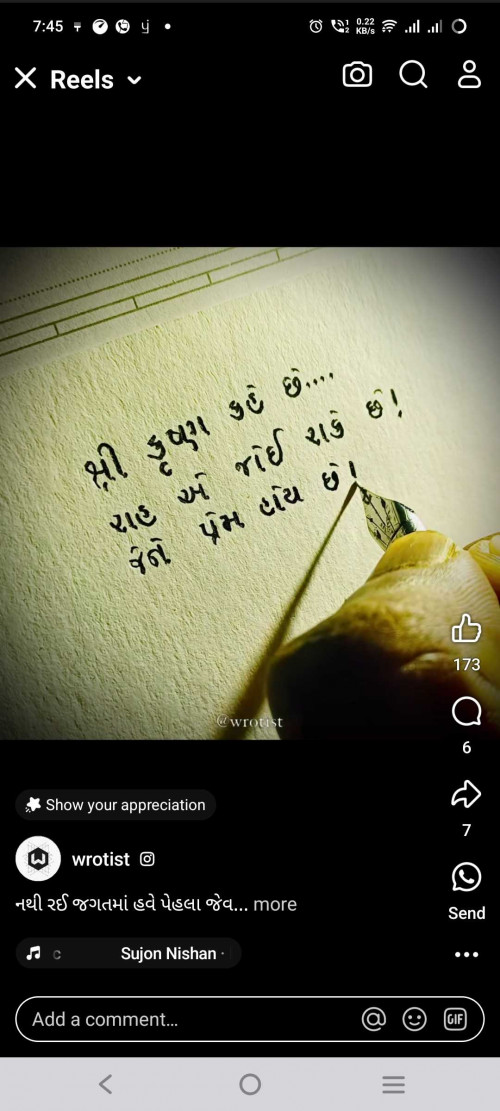 7:45
0.22
KB/s
Reels
શ્રી કૃષ્ણ કહે છે....
રાહ એ જોઈ શકે છે!
જેને પ્રેમ હોય છે!
@wrotist
173
6
7
Show your appreciation
wrotist
નથી રઈ જગતમાં હવે પેહલા જેવ... more
Send
Sujon Nishan ·
Add a comment...
GIF